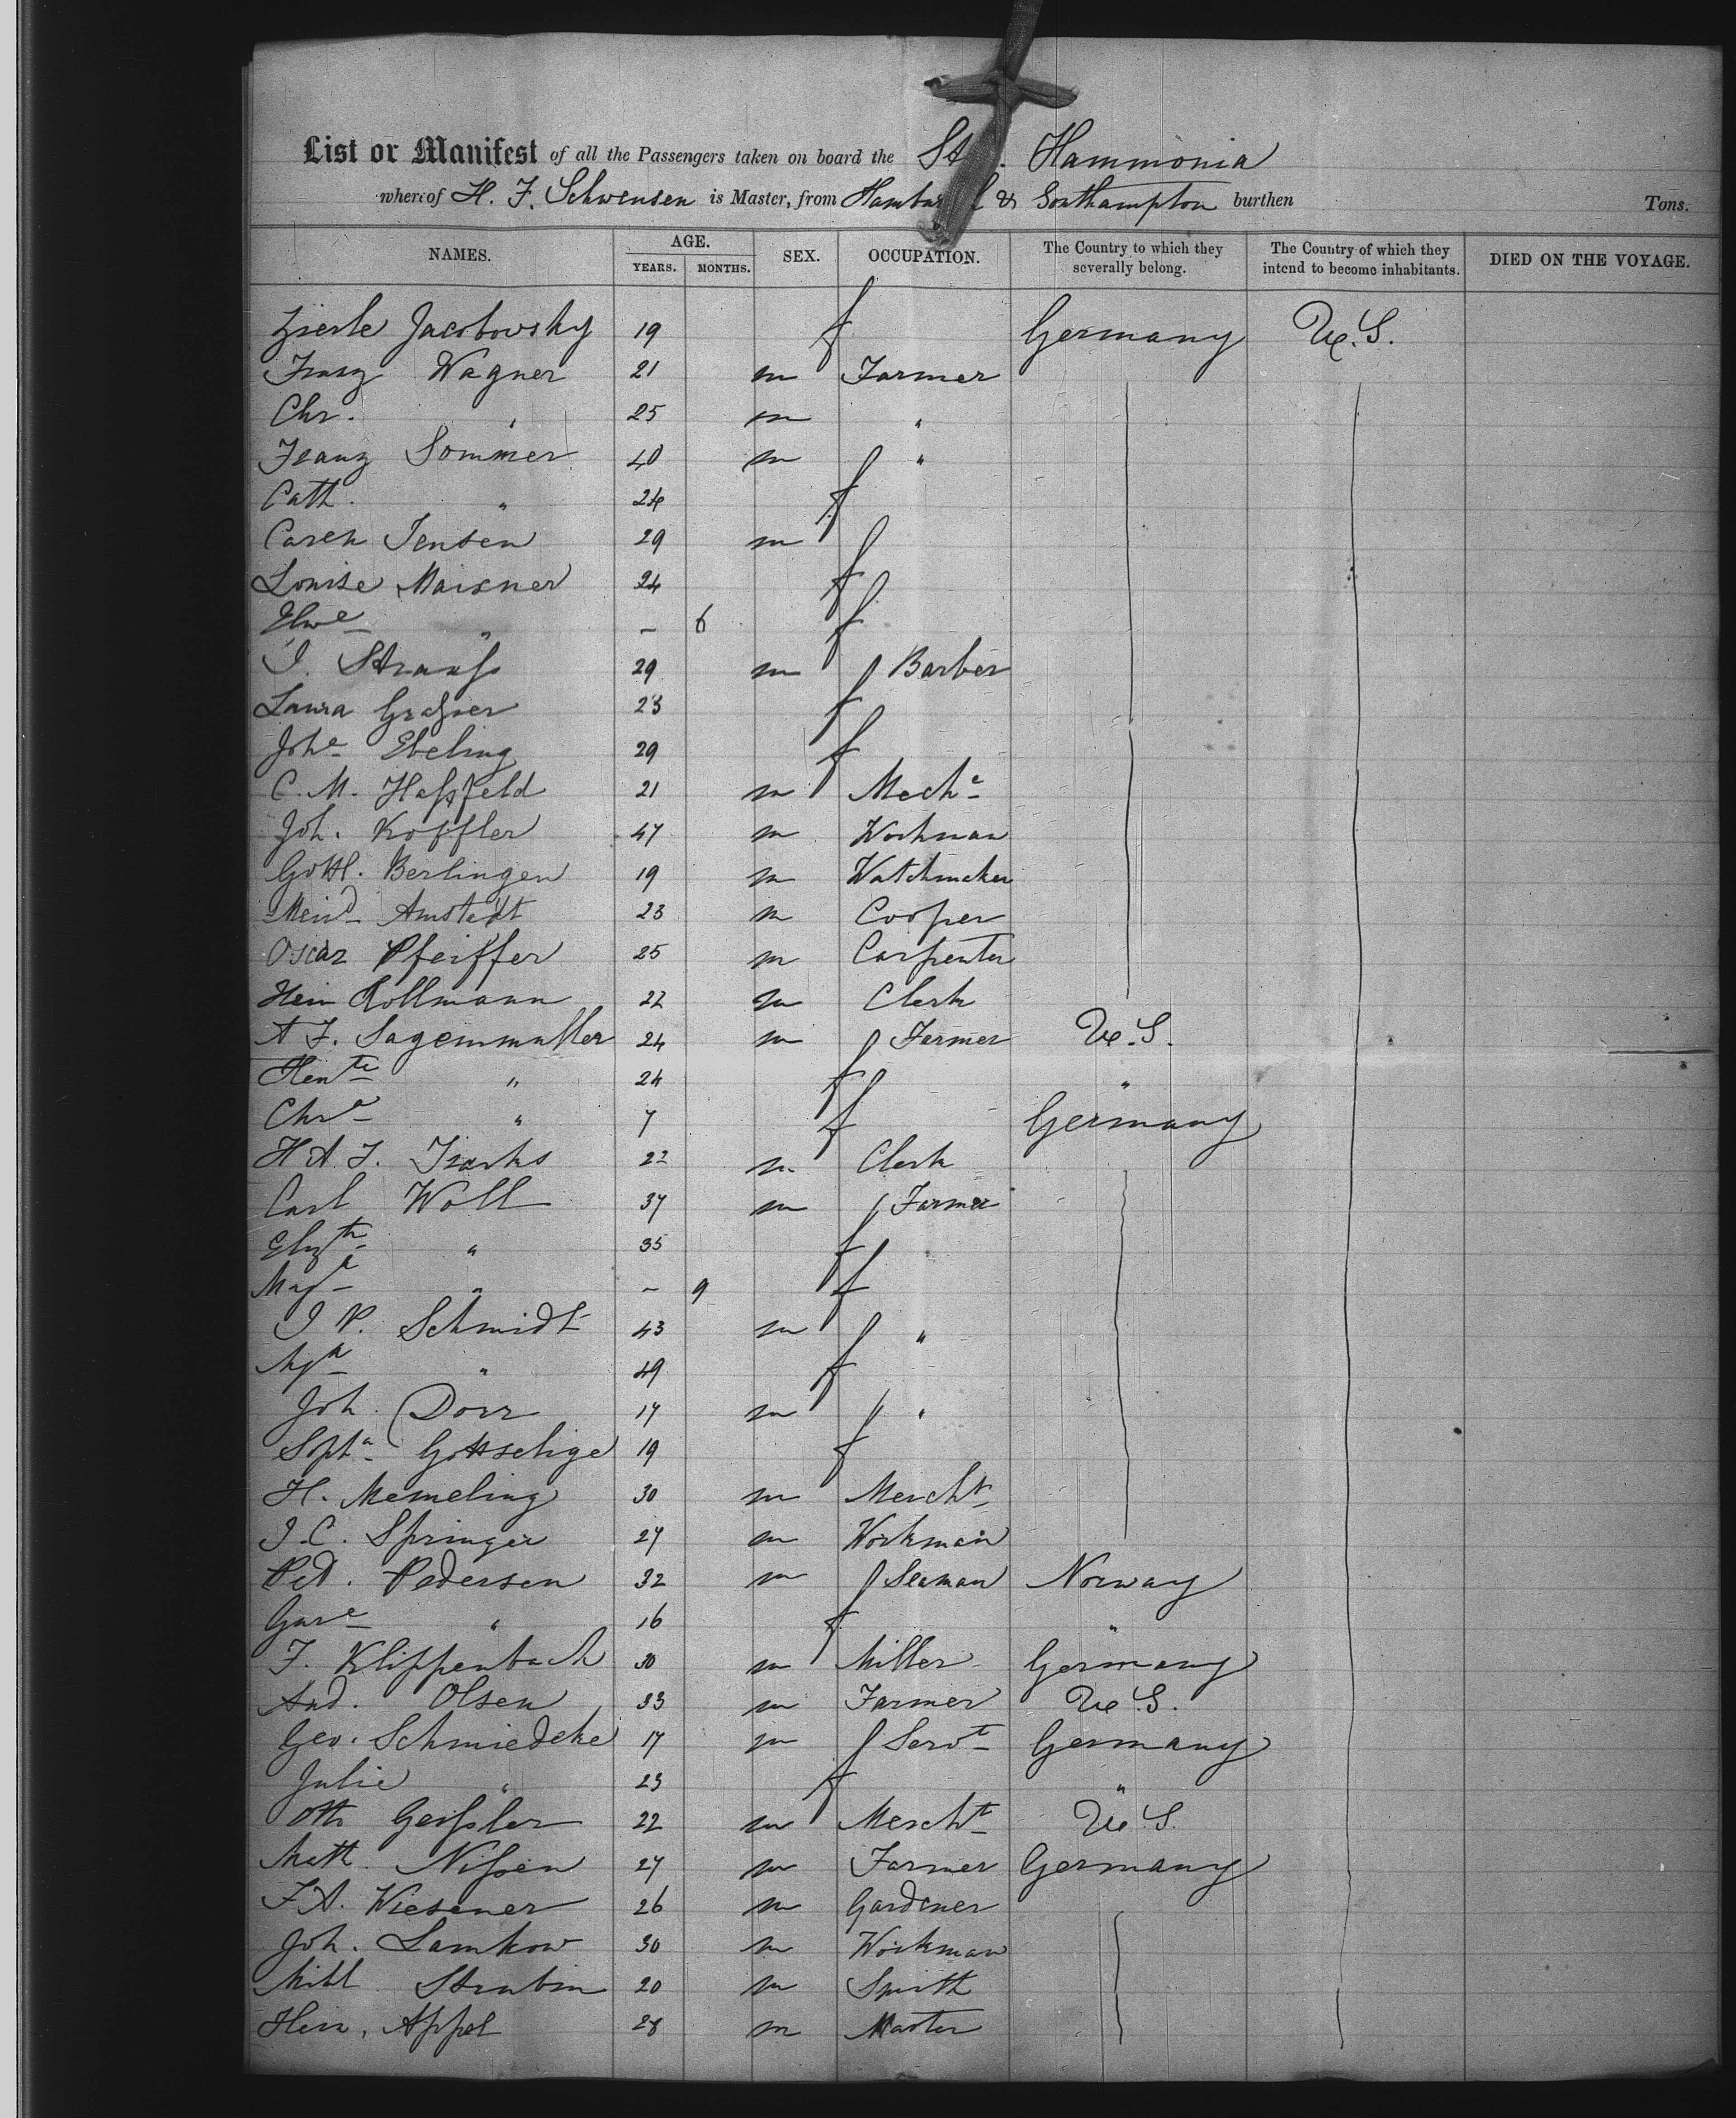 List or Manifest of all the Passengers taken on board the St. Hammonia
whereof H. F. Schwensen is Master, from Hamburg & Southampton burthen Tons.
NAMES. AGE. YEARS. MONTHS. SEX. OCCUPATION. The Country to which they severally belong. The Country of which they intend to become inhabitants. DIED ON THE VOYAGE.
Jacobowsky 19 f Germany U.S.
Franz Wagner 21 m Farmer
Chr. " 25 m "
Franz Sommer 40 m "
Cath. " 24 f
Caren Jensen 29 m
Louise Maisner 24 f
Elwe " – 6 f
I. Strauss 29 m Barber
Laura 23 f
Johe Ebeling 29 f
C. M. Hassfeld 21 m Meche
Joh. Koffler 47 m Workman
Gottl. Berlingen 19 m Watchmaker
Meind Amstedt 23 m Cooper
Oscar Pfeiffer 25 m Carpenter
Hein Kollmann 22 m Clerk
A F. Sagemmuller 24 m Farmer U.S.
Hentte " 24 f "
Chre " 7 f Germany
H A F. Tiarks 22 m Clerk
Carl Woll 37 m Farmer
Elizth " 35 f
" – 9 f
I P. Schmidt 43 m "
" 49 f
Joh. Dorr 17 m "
Spha Gottselige 19 f
H. Memeling 30 m Mercht
I. C. Springer 27 m Workman
Ped. Pedersen 32 m Seaman Norway
Gure " 16 f "
F. Klippenbach 30 m Miller Germany
And. Olsen 33 m Farmer U.S.
Geo. Schmiedeke 17 m Servt Germany
Julie " 23 f "
Otto Geissler 22 m Mercht U.S.
Math. Nissen 27 m Farmer Germany
F. A. Wiesener 26 m Gardener
Joh. Lamkow 30 m Workman
20 m Smith
Hein. Appel 28 m